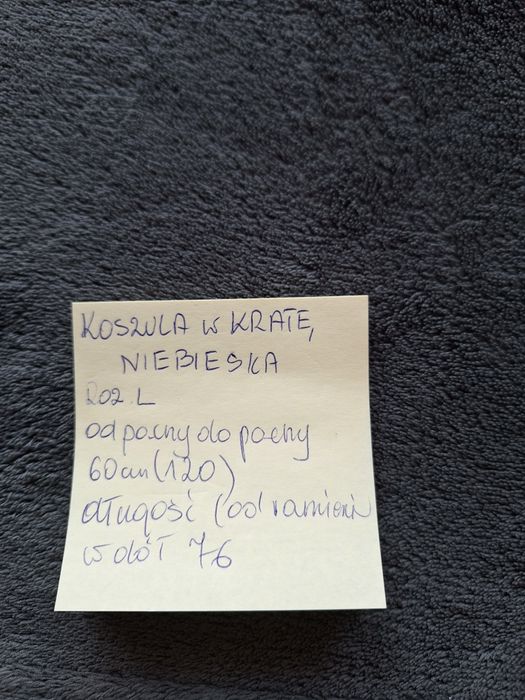 KOSZULA W KRATĘ,
NIEBIESKA
ROZ. L
od pachy do pachy
60cm (120)
długość (od ramienia
w dół 76